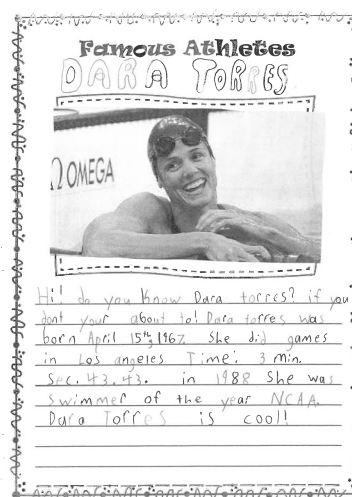 Famous Athletes
DARA TORRES
Ω OMEGA
Hi! do you Know Dara torres? if you
dont your about to! Dara torres was
born April 15th, 1967. She did games
in Los angeles Time: 3 min.
Sec. 43.43. in 1988 She was
Swimmer of the year NCAA.
Dara Torres is cool!